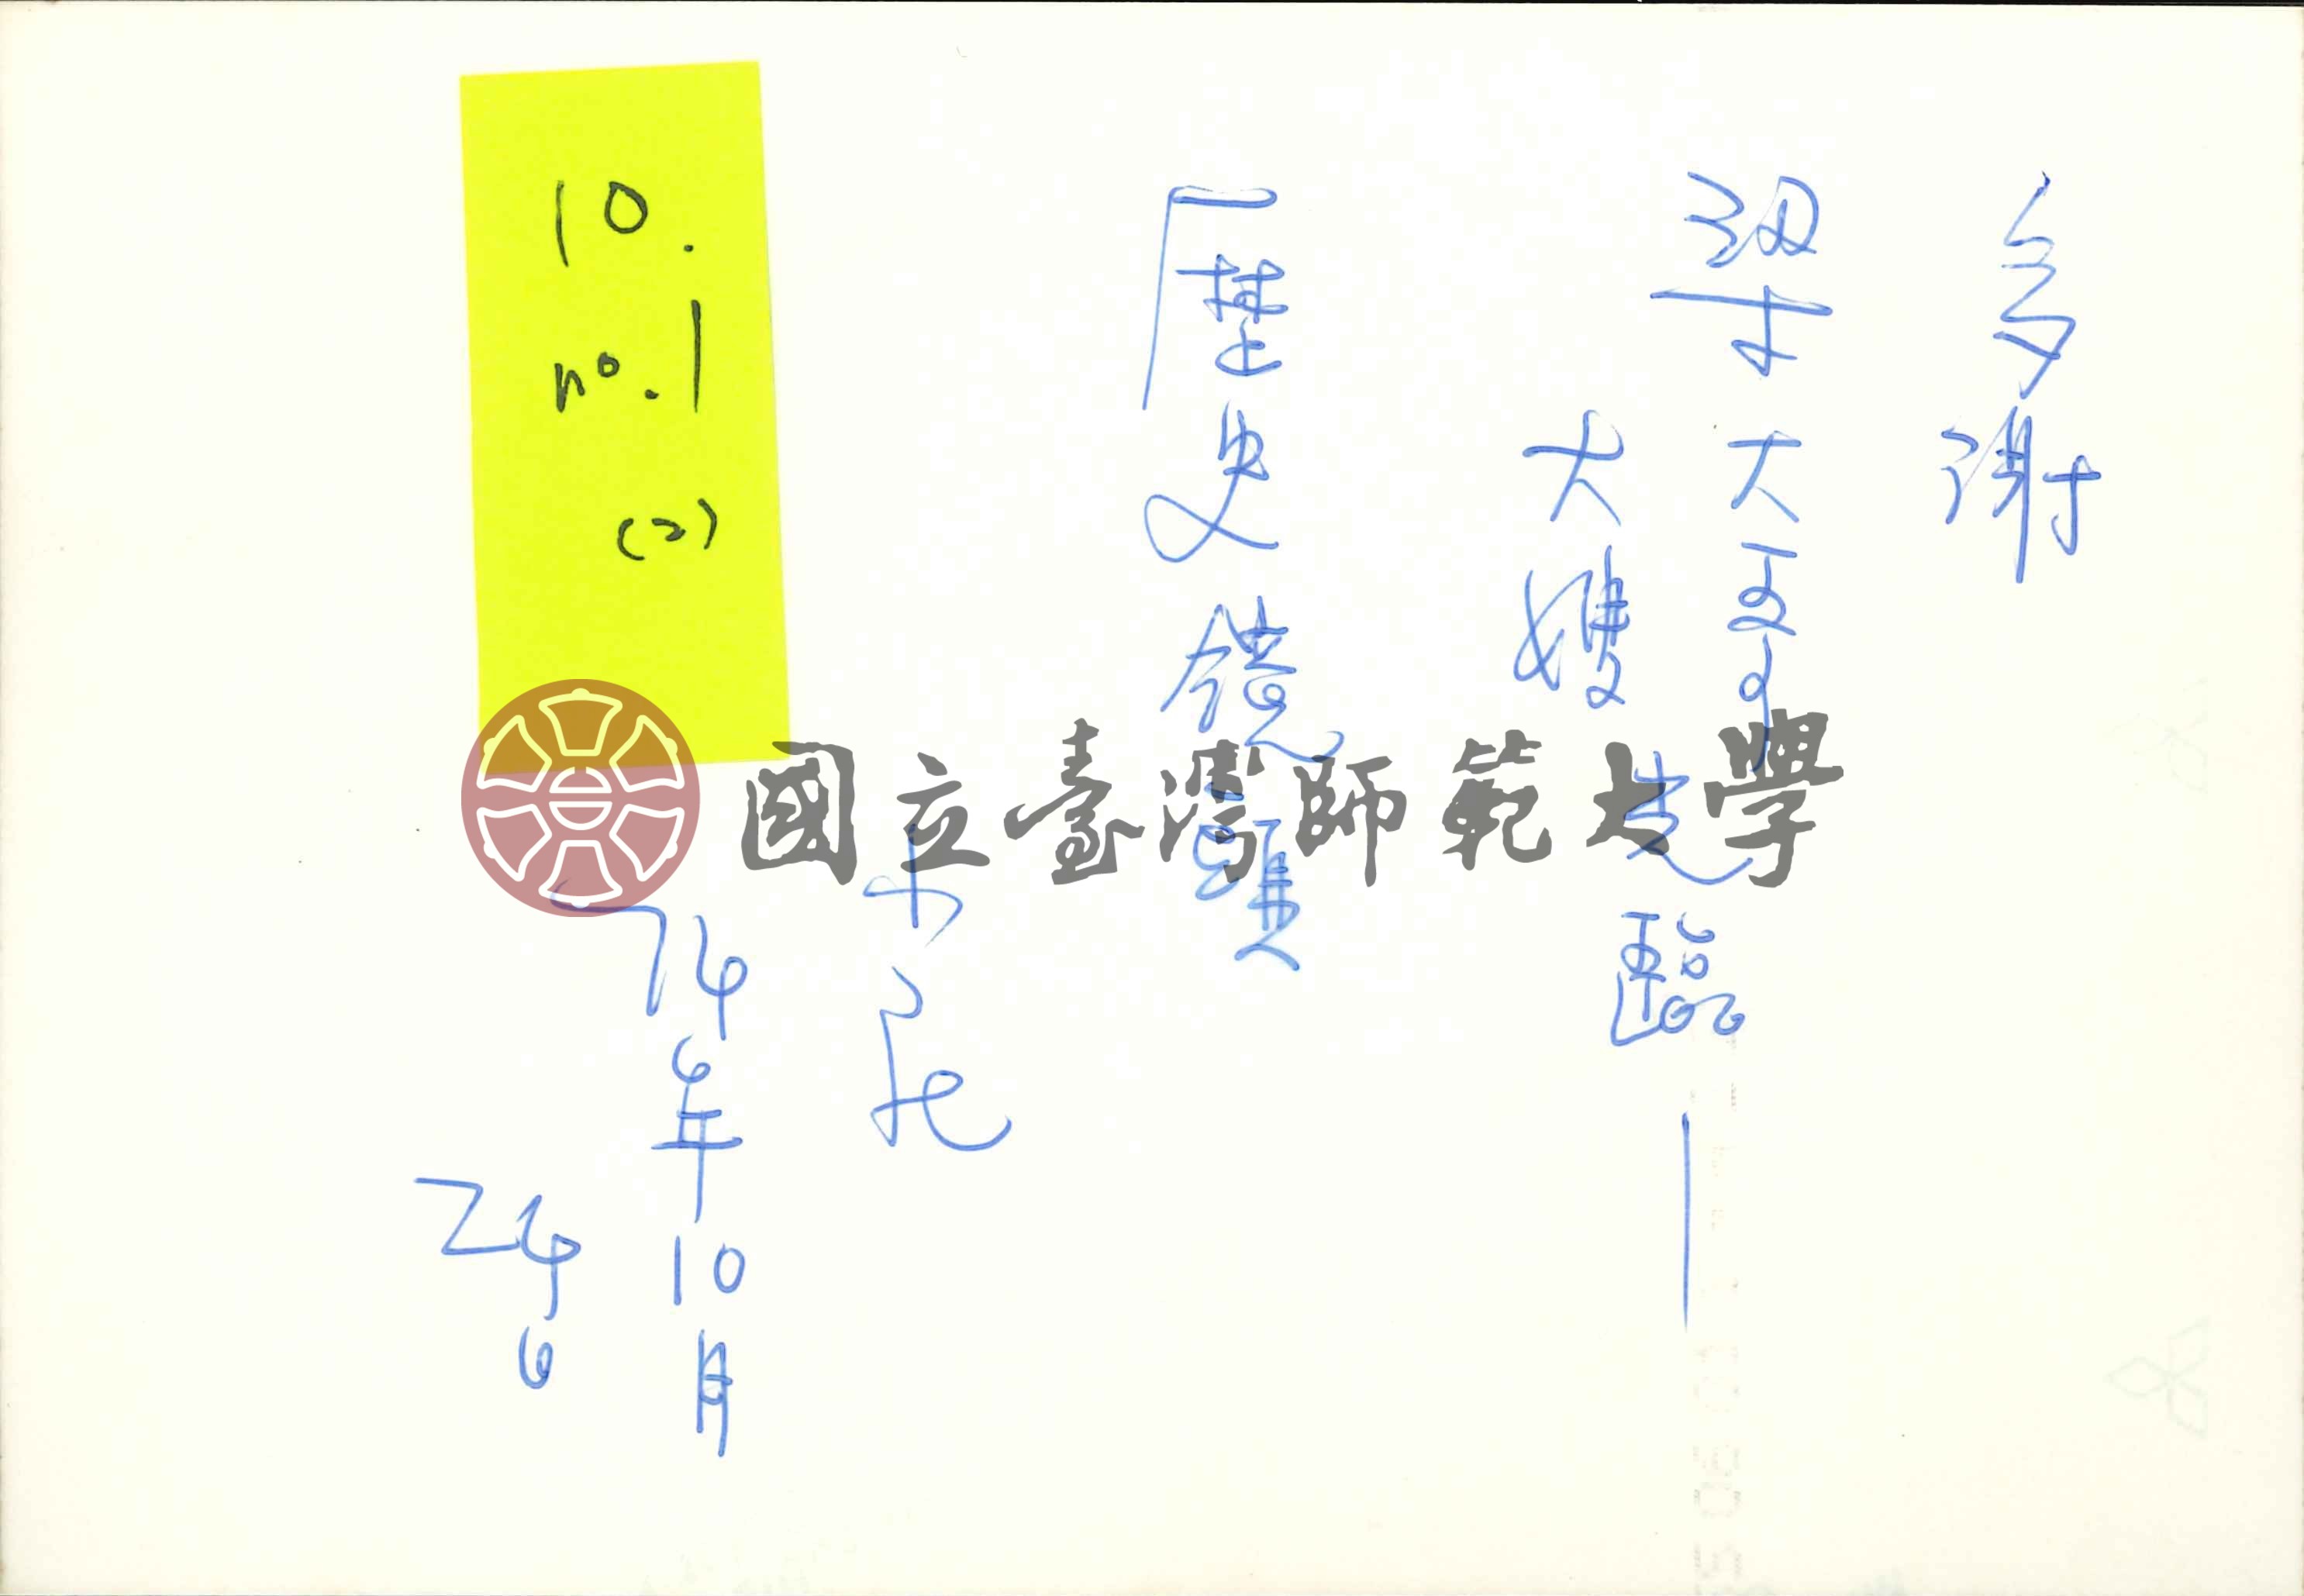 多謝
梁大哥
大嫂光臨—
歷史鏡
74年10月
24日
10.
no.1
(2)
國立臺灣師範大學